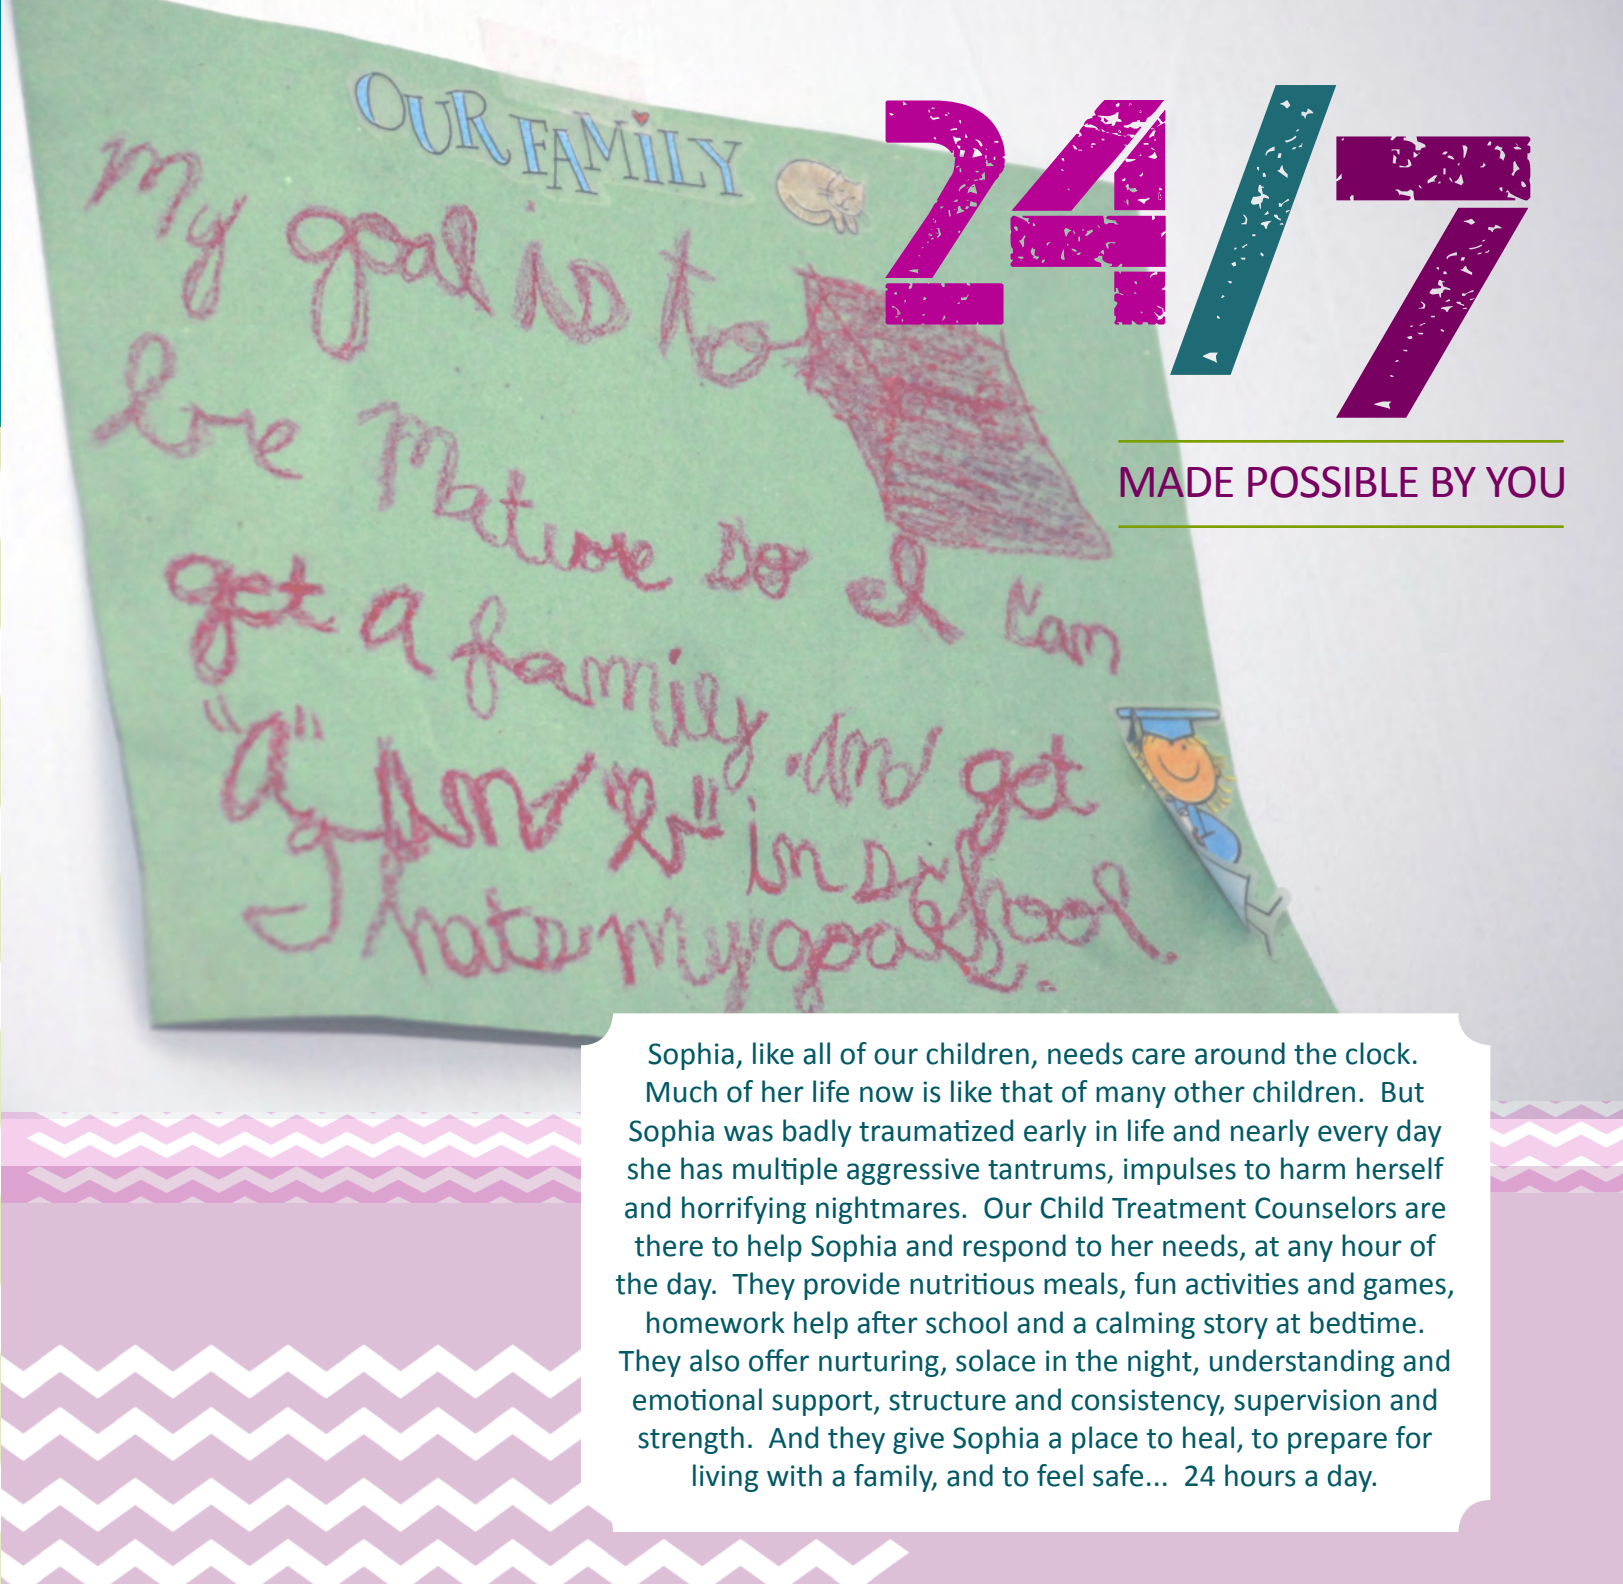 OUR FAMILY
My goal is to
be Mature so I Can
get a family. And get
"a" And "b" in school.
thats my goals.
24/7
MADE POSSIBLE BY YOU
Sophia, like all of our children, needs care around the clock.
Much of her life now is like that of many other children. But
Sophia was badly traumatized early in life and nearly every day
she has multiple aggressive tantrums, impulses to harm herself
and horrifying nightmares. Our Child Treatment Counselors are
there to help Sophia and respond to her needs, at any hour of
the day. They provide nutritious meals, fun activities and games,
homework help after school and a calming story at bedtime.
They also offer nurturing, solace in the night, understanding and
emotional support, structure and consistency, supervision and
strength. And they give Sophia a place to heal, to prepare for
living with a family, and to feel safe... 24 hours a day.